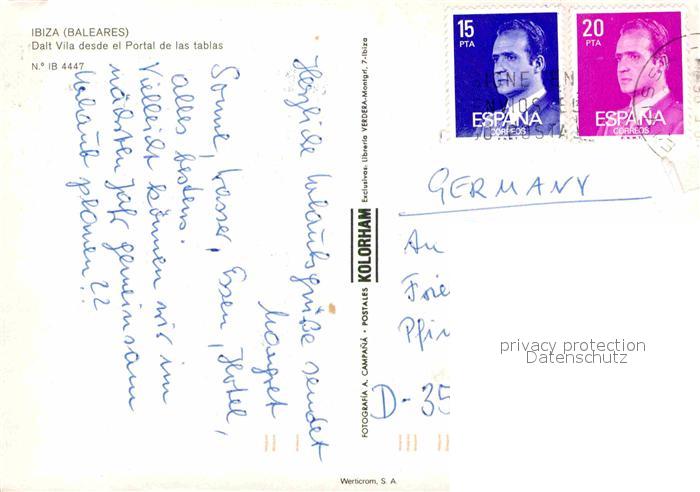 IBIZA (BALEARES)
Dalt Vila desde el Portal de las tablas
N.º IB 4447
Herzliche Urlaubsgrüße sendet
Margret
Sonne, Wasser, Essen, Hotel,
alles bestens.
Vielleicht können wir im
nächsten Jahr gemeinsam
Urlaub planen??
FOTOGRAFÍA A. CAMPAÑÁ · POSTALES KOLORHAM Exclusivas: Librería VERDERA-Montgrí, 7-Ibiza
Werticrom, S. A.
15
PTA
ESPAÑA
CORREOS
20
PTA
ESPAÑA
CORREOS
GERMANY
An
D-35
privacy protection
Datenschutz